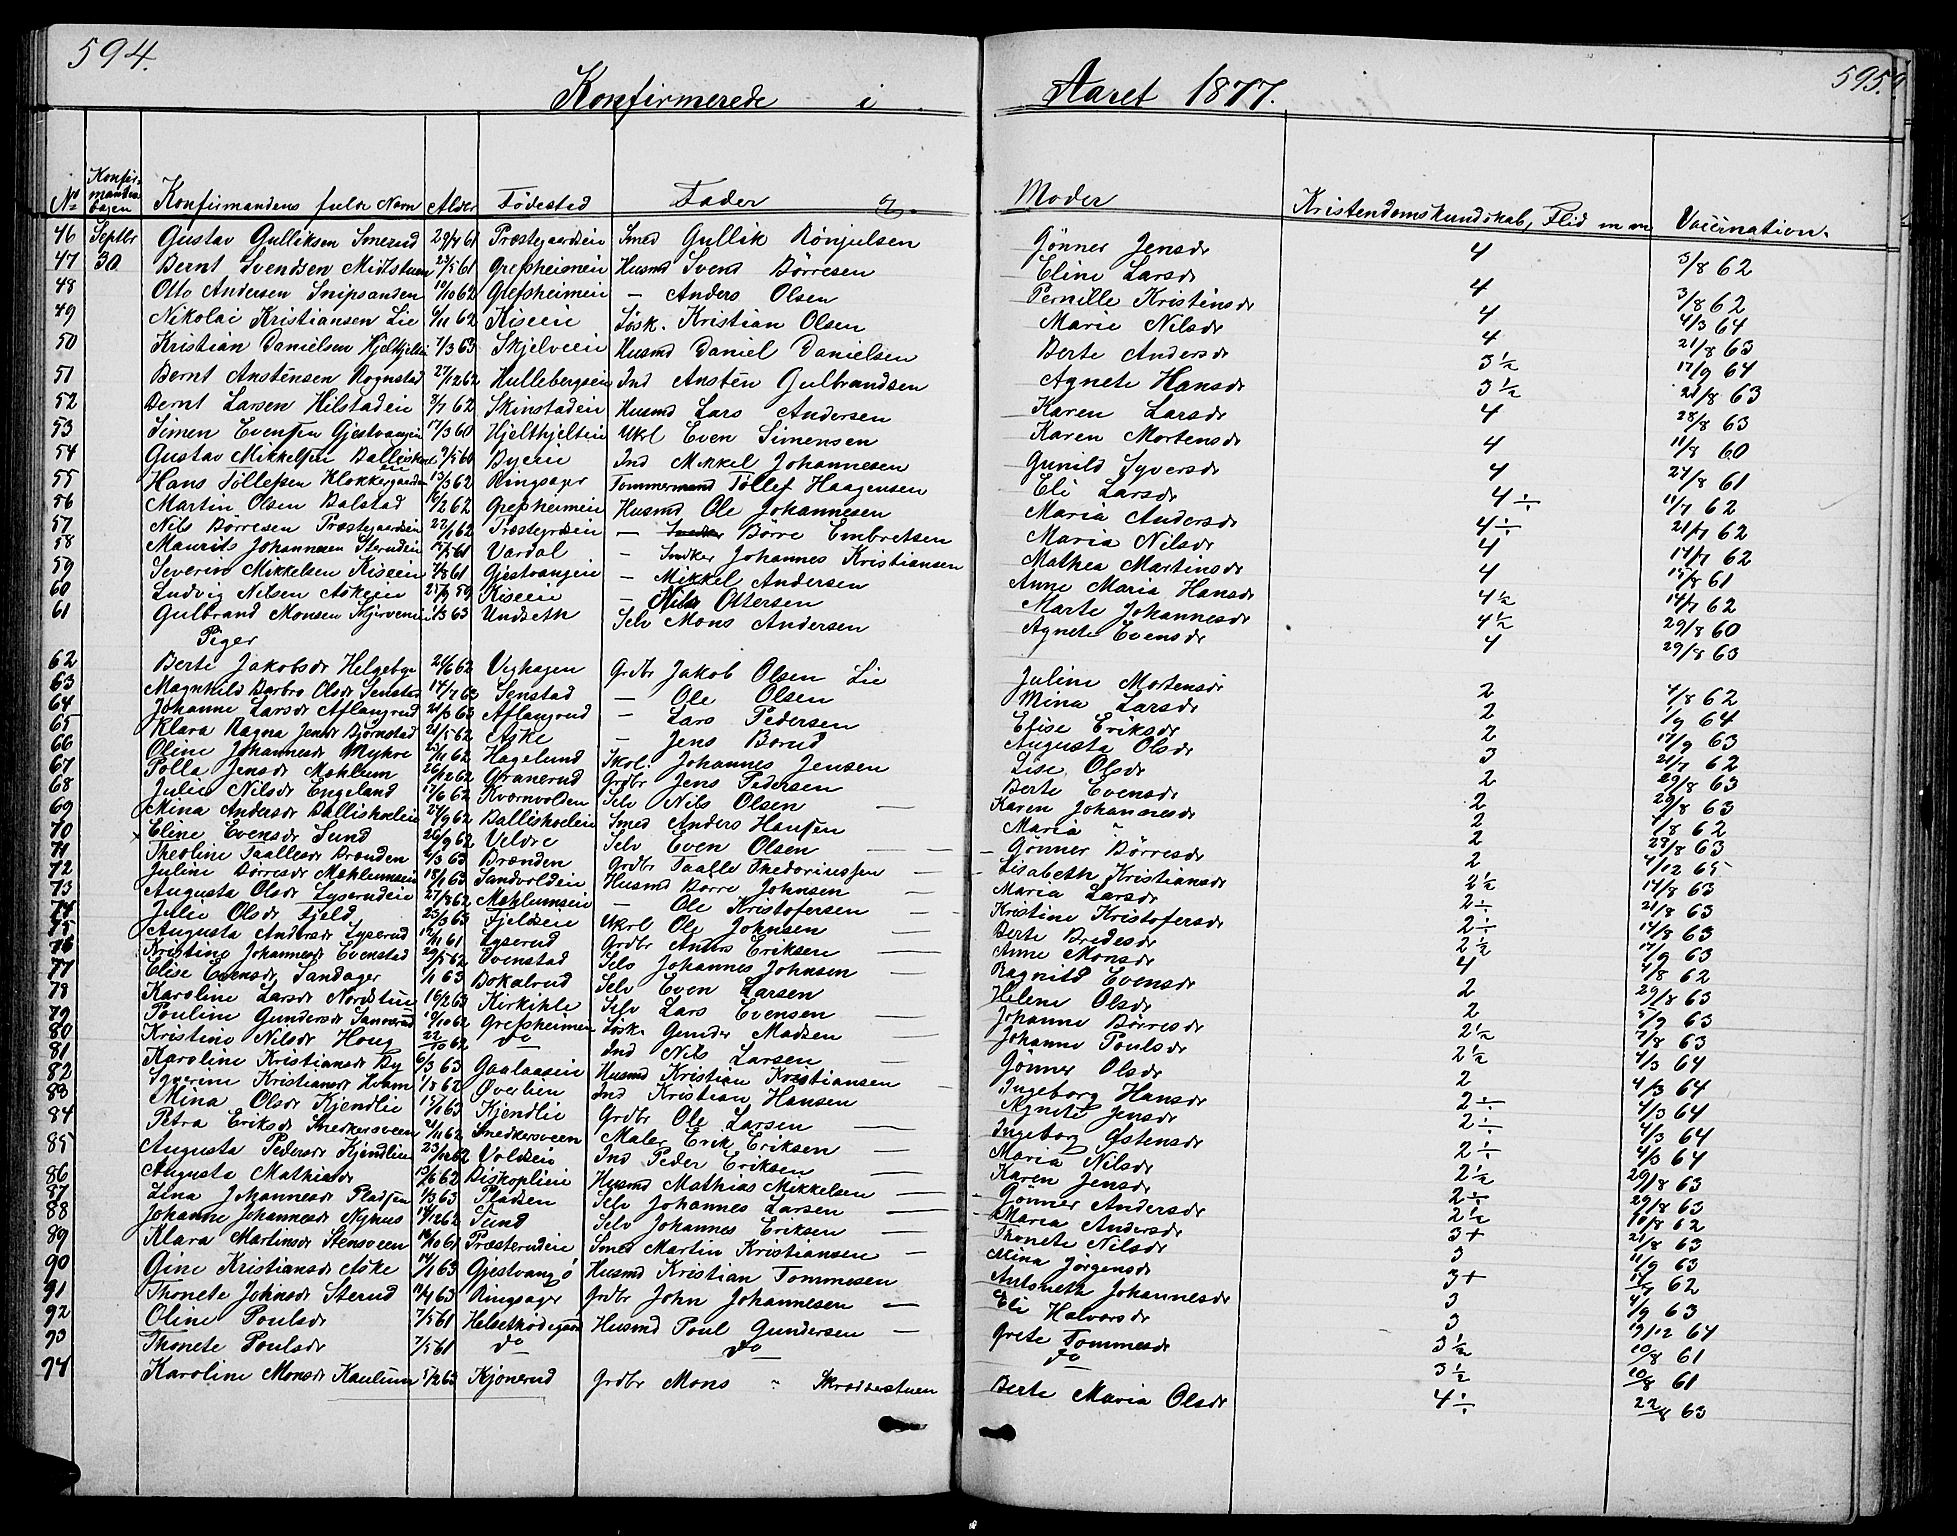 594.
595.
Konfirmerede i Aaret 1877.
No Konfirmantionsdagen Konfirmandens fulde Navn Alder Födested Fader og Moder Kristendomskundskab, Flid m m Vaccination.
46 Septbr Gustav Gulliksen Smerud 29/4 61 Præstegaardseie Smed Gullik Rönjulsen Gönner Jensdr 4 3/8 62
47 30 Bernt Svendsen Midtstuen 23/5 61 Grefsheimeie Husmd Svend Börresen Eline Larsdr 4 3/8 62
48 Otto Andersen Snipsansen 10/10 62 Grefsheimeie — Anders Olsen Pernille Kristinsdr 4 4/3 64
49 Nikolai Kristiansen Lie 9/11 62 Kiseeie Lösk. Kristian Olsen Marie Nilsdr 4 21/8 63
50 Kristian Danielsen Hjelthjelteie 7/3 63 Skjelveeie Husmd Daniel Danielsen Berte Andersdr 3½ 17/9 64
51 Bernt Anstensen Rognstad 27/12 62 Hullebergseie Ind Ansten Gulbrandsen Agnete Hansdr 3½ 21/8 63
52 Bernt Larsen Hilstadeie 3/7 62 Skinstadeie Husmd Lars Andersen Karen Larsdr 4 28/8 63
53 Simen Evensen Gjestvangeie 17/3 60 Hjelthjelteie Ukrl Even Simensen Karen Mortensdr 4 11/8 60
54 Gustav Mikkelsen Ballishoel 9/5 60 Byeeie Ind Mikkel Johannesen Gunild Syversdr 4 24/8 61
55 Hans Tollefsen Klokkergaarden 13/3 62 Ringsager Tommermand Tollef Haagensen Eli Larsdr 4÷ 11/7 62
56 Martin Olsen Balstad 16/2 62 Grefsheimeie Husmd Ole Johannesen Maria Andersdr 4÷ 21/7 62
57 Nils Börresen Præstegaardseie 22/1 62 Præstegrdseie — Börre Embretsen Maria Nilsdr 4 14/7 62
58 Maurits Johannesen Sterudeie 17/5 61 Vardal — Snedker Johannes Kristiansen Mathea Martinsdr 4 15/8 61
59 Severin Mikkelsen Kiseeie 7/8 61 Gjestvangeie — Mikkel Andersen Anne Maria Hansdr 4½ 14/7 62
60 Ludvig Nilsen Askeeie 25/9 59 Kiseeie — Nils Ottersen Marte Johannesdr 4½ 29/8 60
61 Gulbrand Monsen Skjerveneie 1/3 63 Undseth Selv Mons Andersen Agnete Evensdr 4 29/8 63
Piger
62 Berte Jakobsdr Helgebye 24/6 62 Veghagen Grdbr Jakob Olsen Lie Juline Mortensdr 2 4/8 62
63 Magnhild Barbro Olsdr Senstad 14/7 62 Senstad — Ole Olsen Mina Larsdr 2 1/9 64
64 Johanne Larsdr Aflangrud 21/3 63 Aflangrud — Lars Pedersen Elise Eriksdr 2 17/9 63
65 Klara Ragna Jensdr Björnstad 21/5 62 Aske — Jens Borud Augusta Olsdr 3 21/7 62
66 Oline Johannesdr Myhre 23/11 62 Hagelund Skol. Johannes Jensen Lise Olsdr 2 29/8 63
67 Polla Jensdr Mæhlum 26/12 62 Granerud Grdbr Jens Pedersen Berte Evensdr 2 29/8 63
68 Julie Nilsdr Engeland 17/6 62 Kvernvolden Selv Nils Olsen — Karen Johannesdr 2 4/8 62
69 Mina Andersdr Ballishoeleie 24/9 62 Ballishoeleie Smed Anders Hansen Maria " 2 28/8 63
70 Eline Evensdr Sund 26/9 62 Veldre Selv Even Olsen — Gönner Börresdr 2 4/12 65
71 Theoline Taallesdr Brænden 2/3 63 Brænden Grdbr Taalle Thedoriussen — Lisabeth Kristiansdr 2½ 14/8 63
72 Juline Börresdr Mæhlumseie 18/1 63 Sandvoldeie Husmd Börre Johnsen — Maria Larsdr 2÷ 21/8 63
73 Augusta Olsdr Lyserudeie 27/8 62 Mæhlumseie — Ole Kristofersen — Kristine Kristofersdr 2÷ 14/8 63
74 Julie Olsdr Fjeld 23/3 63 Fjeldseie Ukrl Ole Johnsen — Berte Bredesdr 2½ 17/9 63
75 Augusta Andersdr Lyserud 16/11 61 Lyserud Grdbr Anders Eriksen — Anne Monsdr 4 4/8 62
76 Kristine Johannesdr Evenstad 20/5 62 Evenstad Selv Johannes Johnsen — Ragnild Evensdr 2 29/8 63
77 Elise Evensdr Sandager 1/1 63 Bokalrud Selv Even Larsen Helene Olsdr 2 5/9 63
78 Karoline Larsdr Nordstue 16/2 63 Kirkihle Selv Lars Evensen — Johanne Börresdr 2½ 7/8 63
79 Pouline Gundersdr Sannerud 19/10 62 Grefsheimeie Lösk. Gunder Madsen — Johanne Poulsdr 2½ 4/3 64
80 Kristine Nilsdr Houg 22/10 62 do Ind Nils Larsen — Gönner Olsdr 2 4/3 64
81 Karoline Kristiansdr By 6/3 63 Gaalaaseie Husmd Kristian Kristiansen — Ingeborg Hansdr 2÷ 4/3 64
82 Syverine Kristiansdr Hvam 1/8 62 Överlien Ind Kristian Hansen Agnete Jensdr 2÷ 4/3 64
83 Mina Olsdr Kjendlie 15/1 63 Kjendlie Grdbr Ole Larsen — Ingeborg Østensdr 2÷ 4/3 64
84 Petra Eriksdr Snedkersveen 2/11 62 Snedkersveen Maler Erik Eriksen — Maria Nilsdr 2½ 29/8 63
85 Augusta Pedersdr Kjendlieie 23/12 62 Voldseie Ind Peder Eriksen — Karen Jensdr 2÷ 29/8 63
86 Augusta Mathiasdr 13/6 62 Biskoplieie Husmd Mathias Mikkelsen — Gönner Andersdr 2½ 10/8 62
87 Lina Johannesdr Pladsen 1/3 63 Pladsen Selv Johannes Larsen — Maria Andersdr 3+ 21/8 63
88 Johanne Johannesdr Nyhus 14/12 62 Sund Selv Johannes Eriksen — Thonete Nilsdr 3 11/9 63
89 Klara Martinsdr Stensveen 19/10 61 Præsterudeie Smed Martin Kristiansen — Mina Jörgensdr 3+ 14/7 62
90 Gine Kristiansdr Aske 14/1 63 Gjestvang ö Husmd Kristian Tommesen Antonette Johannesdr 3 4/9 63
91 Thonete Johnsdr Sterud 11/4 63 Ringsager Grdbr John Johannesen — Eli Halvorsdr 3 19/12 64
92 Oline Poulsdr 7/5 61 Helsethödegaard Husmd Poul Gundersen — Grete Tommesdr 3½ 10/8 61
93 Thonete Poulsdr 7/5 61 do do do 3½ 10/8 61
94 Karoline Monsdr Kaulum 5/2 63 Kjönerud Grdbr Mons " Skrædderstuen Berte Maria Olsdr 4÷ 22/8 63